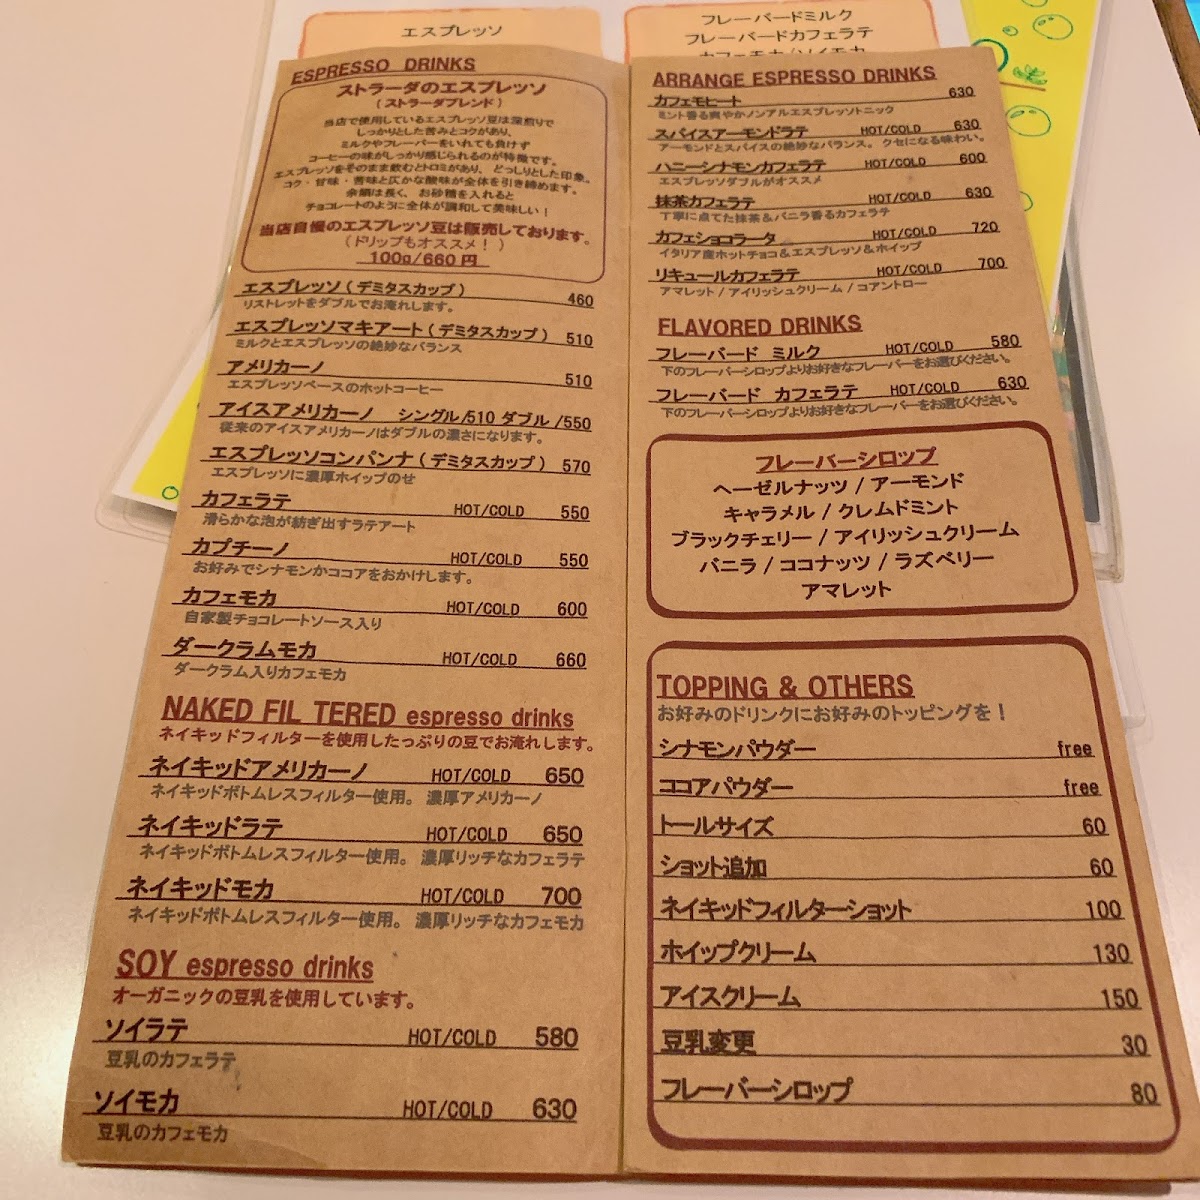 エスプレッソ
フレーバードミルク
フレーバードカフェラテ
カフェモカ/ソイモカ
ESPRESSO DRINKS
ストラーダのエスプレッソ
(ストラーダブレンド)
当店で使用しているエスプレッソ豆は深煎りで
しっかりとした苦みとコクがあり、
ミルクやフレーバーをいれても負けず
コーヒーの味がしっかり感じられるのが特徴です。
エスプレッソをそのまま飲むとトロミがあり、どっしりとした印象。
コク・甘味・苦味と仄かな酸味が全体を引き締めます。
余韻は長く、お砂糖を入れると
チョコレートのように全体が調和して美味しい!
当店自慢のエスプレッソ豆は販売しております。
(ドリップもオススメ!)
100g/660円
エスプレッソ(デミタスカップ) 460
リストレットをダブルでお淹れします。
エスプレッソマキアート(デミタスカップ) 510
ミルクとエスプレッソの絶妙なバランス
アメリカーノ 510
エスプレッソベースのホットコーヒー
アイスアメリカーノ シングル/510 ダブル/550
従来のアイスアメリカーノはダブルの濃さになります。
エスプレッソコンパンナ(デミタスカップ) 570
エスプレッソに濃厚ホイップのせ
カフェラテ HOT/COLD 550
滑らかな泡が紡ぎ出すラテアート
カプチーノ HOT/COLD 550
お好みでシナモンかココアをおかけします。
カフェモカ HOT/COLD 600
自家製チョコレートソース入り
ダークラムモカ HOT/COLD 660
ダークラム入りカフェモカ
NAKED FIL TERED espresso drinks
ネイキッドフィルターを使用したっぷりの豆でお淹れします。
ネイキッドアメリカーノ HOT/COLD 650
ネイキッドボトムレスフィルター使用。濃厚アメリカーノ
ネイキッドラテ HOT/COLD 650
ネイキッドボトムレスフィルター使用。濃厚リッチなカフェラテ
ネイキッドモカ HOT/COLD 700
ネイキッドボトムレスフィルター使用。濃厚リッチなカフェモカ
SOY espresso drinks
オーガニックの豆乳を使用しています。
ソイラテ HOT/COLD 580
豆乳のカフェラテ
ソイモカ HOT/COLD 630
豆乳のカフェモカ
ARRANGE ESPRESSO DRINKS
カフェモヒート 630
ミント香る爽やかノンアルエスプレッソトニック
スパイスアーモンドラテ HOT/COLD 630
アーモンドとスパイスの絶妙なバランス。クセになる味わい。
ハニーシナモンカフェラテ HOT/COLD 600
エスプレッソダブルがオススメ
抹茶カフェラテ HOT/COLD 630
丁寧に点てた抹茶&バニラ香るカフェラテ
カフェショコラータ HOT/COLD 720
イタリア産ホットチョコ&エスプレッソ&ホイップ
リキュールカフェラテ HOT/COLD 700
アマレット/アイリッシュクリーム/コアントロー
FLAVORED DRINKS
フレーバード ミルク HOT/COLD 580
下のフレーバーシロップよりお好きなフレーバーをお選びください。
フレーバード カフェラテ HOT/COLD 630
下のフレーバーシロップよりお好きなフレーバーをお選びください。
フレーバーシロップ
ヘーゼルナッツ / アーモンド
キャラメル / クレムドミント
ブラックチェリー / アイリッシュクリーム
バニラ / ココナッツ / ラズベリー
アマレット
TOPPING & OTHERS
お好みのドリンクにお好みのトッピングを!
シナモンパウダー free
ココアパウダー free
トールサイズ 60
ショット追加 60
ネイキッドフィルターショット 100
ホイップクリーム 130
アイスクリーム 150
豆乳変更 30
フレーバーシロップ 80